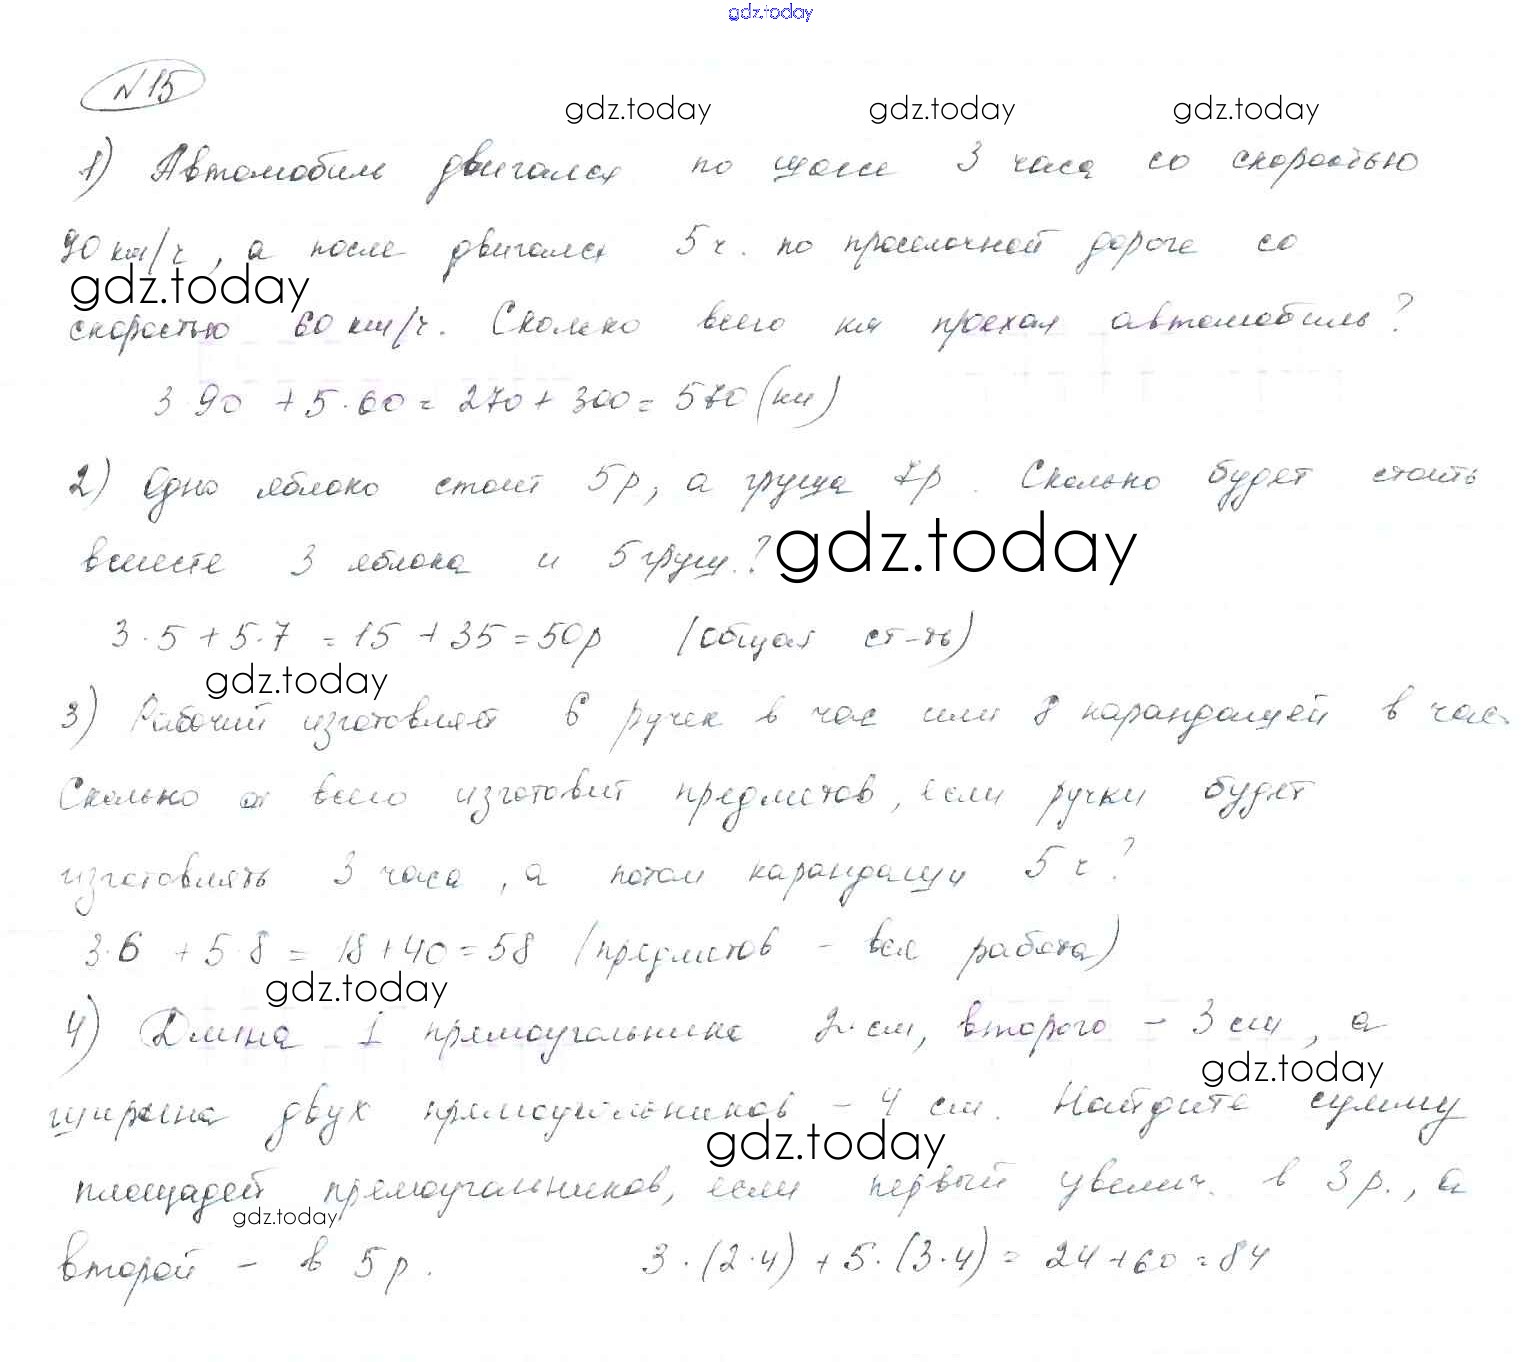 gdz.today
№15
gdz.today gdz.today gdz.today
1) Автомобиль двигался по шоссе 3 часа со скоростью
90 км/ч, а после двигался 5 ч. по проселочной дороге со
gdz.today
скоростью 60 км/ч. Сколько всего км проехал автомобиль?
3·90 + 5·60 = 270 + 300 = 570 (км)
2) Одно яблоко стоит 5р, а груша 7р. Сколько будет стоить
вместе 3 яблока и 5 груш.?
gdz.today
3·5 + 5·7 = 15 + 35 = 50р (общая ст-ть)
gdz.today
3) Рабочий изготовляет 6 ручек в час или 8 карандашей в час.
Сколько всего изготовит предметов, если ручки будет
изготовлять 3 часа, а потом карандаши 5 ч?
3·6 + 5·8 = 18 + 40 = 58 (предметов – вся работа)
gdz.today
4) Длина 1 прямоугольника 2 см, второго – 3 см, а
gdz.today
ширина двух прямоугольников – 4 см. Найдите сумму
gdz.today
площадей прямоугольников, если первый увелич. в 3 р., а
gdz.today
второй – в 5 р. 3·(2·4) + 5·(3·4) = 24 + 60 = 84